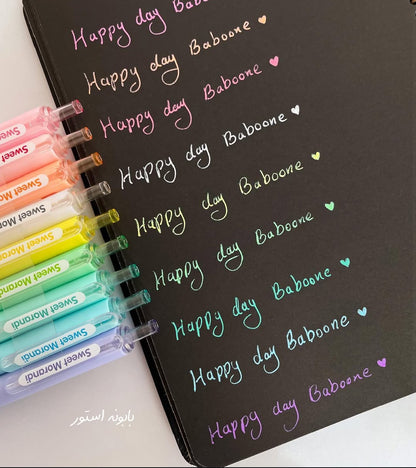 Happy day Baboone
Happy day Baboone
Happy day Baboone
Happy day Baboone
Happy day Baboone
Happy day Baboone
Happy day Baboone
Happy day Baboone
Happy day Baboone
Sweet Morandi
Sweet Morandi
Sweet Morandi
Sweet Morandi
Sweet Morandi
Sweet Morandi
Sweet Morandi
Sweet Morandi
Sweet Morandi
بابونه استور